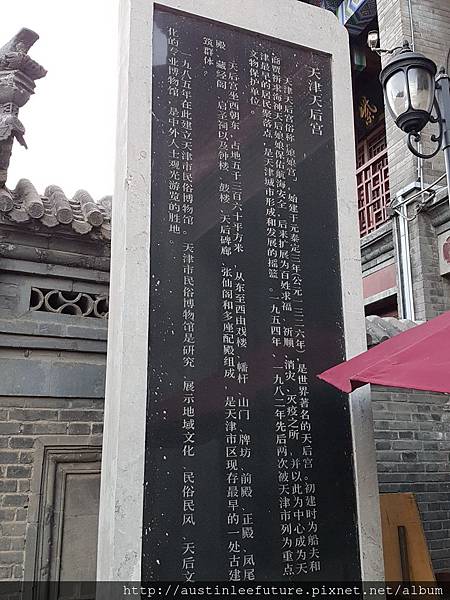 天津天后宫
天津天后宫俗称“娘娘宫”，始建于元泰定三年(公元一三二六年)，是世界著名的天后宫。初建时为船夫和
商贾祈求海神天后娘娘保佑航海安全，后来扩展为百姓求福、祈顺、消灾、灭疫之所，并以此为中心成为天
津最早的居民聚落点，是天津城市形成和发展的摇篮。一九五四年、一九八二年先后两次被天津市列为重点
文物保护单位。
天后宫坐西朝东，占地五千三百六十平方米。从东至西由戏楼、幡杆、山门、牌坊、前殿、正殿、凤尾
殿、藏经阁、启圣祠以及钟楼、鼓楼、天后碑廊、张仙阁和多座配殿组成，是天津市区现存最早的一处古建
筑群体。
一九八五年在此建立天津市民俗博物馆。天津市民俗博物馆是研究、展示地域文化、民俗民风、天后文
化的专业博物馆，是中外人士观光游览的胜地。
紫
http://austinleefuture.pixnet.net/album